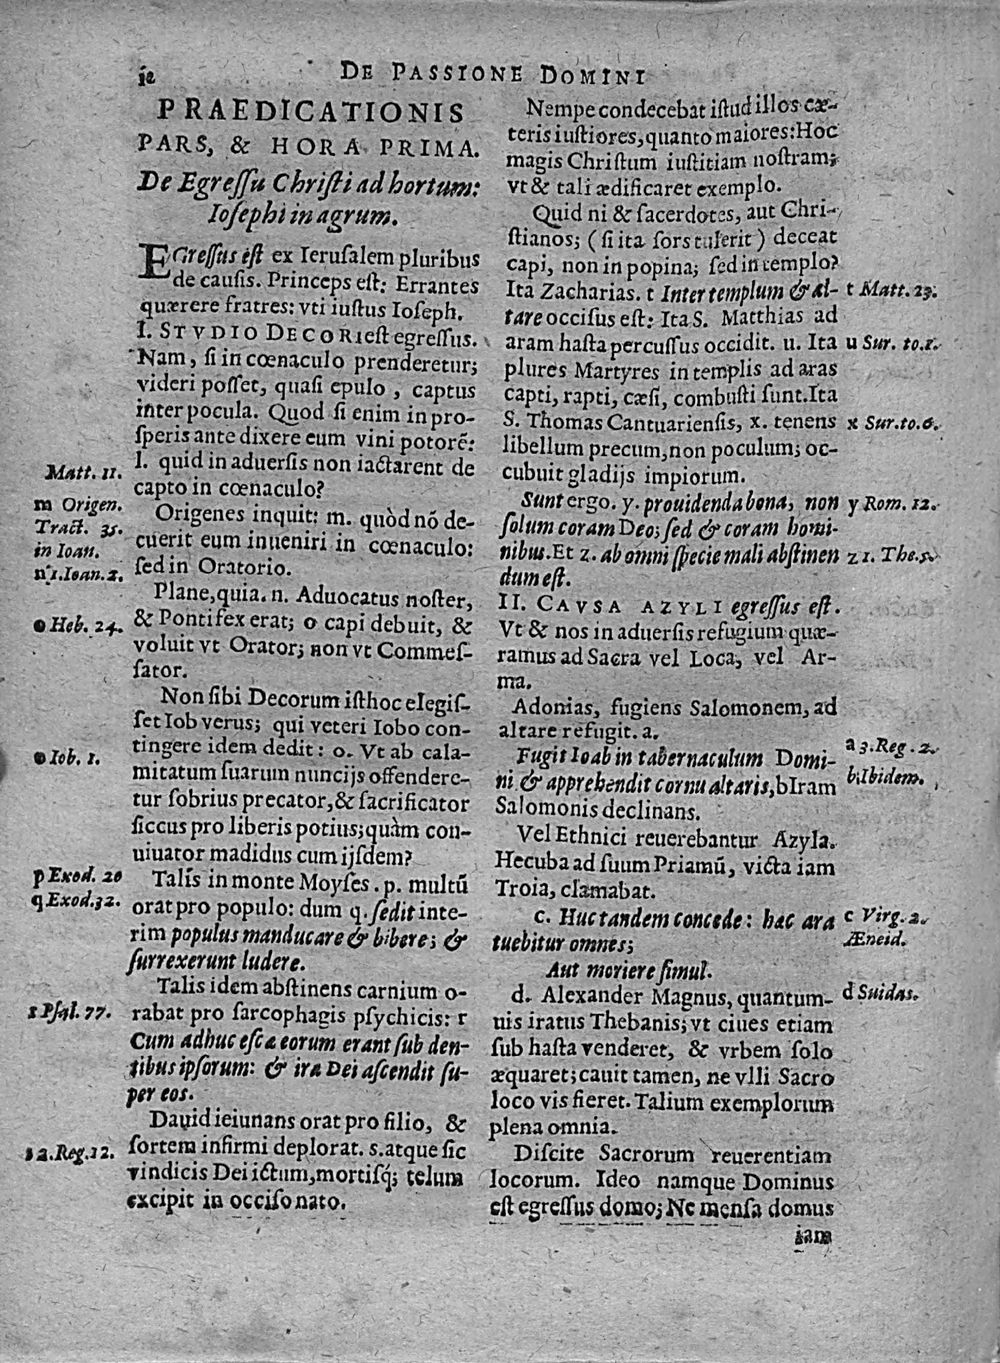 DE PASSIONE DOMINI
PRAEDICATIONIS
PARS, & HORA PRIMA.
De Egreſſu Chriſti ad hortum:
Ioſephi in agrum.
EGreſſus eſt ex Ieruſalem pluribus
de cauſis. Princeps eſt: Errantes
quærere fratres: vti iuſtus Ioſeph.
I. STVDIO DECORI eſt egreſſus.
Nam, ſi in cœnaculo prenderetur;
videri poſſet, quaſi epulo, captus
inter pocula. Quod ſi enim in pro-
ſperis ante dixere eum vini potorē:
l. quid in aduerſis non iactarent de
capto in cœnaculo?
Origenes inquit: m. quòd nō de-
cuerit eum inueniri in cœnaculo:
ſed in Oratorio.
Plane, quia. n. Aduocatus noſter,
& Pontifex erat; o capi debuit, &
voluit vt Orator; non vt Commeſ-
ſator.
Non ſibi Decorum iſthoc elegiſ-
ſet Iob verus; qui veteri Iobo con-
tingere idem dedit: o. Vt ab cala-
mitatum ſuarum nuncijs offendere-
tur ſobrius precator, & ſacrificator
ſiccus pro liberis potius; quàm con-
uiuator madidus cum ijſdem?
Talis in monte Moyſes. p. multū
orat pro populo: dum q. ſedit inte-
rim populus manducare & bibere; &
ſurrexerunt ludere.
Talis idem abſtinens carnium o-
rabat pro ſarcophagis pſychicis: r
Cum adhuc eſcæ eorum erant ſub den-
tibus ipſorum: & ira Dei aſcendit ſu-
per eos.
Dauid ieiunans orat pro filio, &
ſortem infirmi deplorat. s. atque ſic
vindicis Dei ictum, mortiſq; telum
excipit in occiſo nato.
Matt. 11.
m Origen.
Tract. 35.
in Ioan.
n 1. Ioan. 2.
o Heb. 24.
o Iob. 1.
p Exod. 20
q Exod. 32.
r Pſal. 77.
s 2. Reg. 12.
Nempe condecebat iſtud illos cæ-
teris iuſtiores, quanto maiores: Hoc
magis Chriſtum iuſtitiam noſtram;
vt & tali ædificaret exemplo.
Quid ni & ſacerdotes, aut Chri-
ſtianos; (ſi ita ſors tulerit) deceat
capi, non in popina; ſed in templo?
Ita Zacharias. t Inter templum & al-
tare occiſus eſt: Ita S. Matthias ad
aram haſta percuſſus occidit. u. Ita
plures Martyres in templis ad aras
capti, rapti, cæſi, combuſti ſunt. Ita
S. Thomas Cantuarienſis, x. tenens
libellum precum, non poculum; oc-
cubuit gladijs impiorum.
Sunt ergo. y. prouidenda bona, non
ſolum coram Deo; ſed & coram homi-
nibus. Et z. ab omni ſpecie mali abſtinen
dum eſt.
II. CAVSA AZYLI egreſſus eſt.
Vt & nos in aduerſis refugium quæ-
ramus ad Sacra vel Loca, vel Ar-
ma.
Adonias, fugiens Salomonem, ad
altare refugit. a.
Fugit Ioab in tabernaculum Domi-
ni & apprehendit cornu altaris, b Iram
Salomonis declinans.
Vel Ethnici reuerebantur Azyla.
Hecuba ad ſuum Priamū, victa iam
Troia, clamabat.
c. Huc tandem concede: hac ara
tuebitur omnes;
Aut moriere ſimul.
d. Alexander Magnus, quantum-
uis iratus Thebanis; vt ciues etiam
ſub haſta venderet, & vrbem ſolo
æquaret; cauit tamen, ne vlli Sacro
loco vis fieret. Talium exemplorum
plena omnia.
Diſcite Sacrorum reuerentiam
locorum. Ideo namque Dominus
eſt egreſſus domo; Ne menſa domus
iam
t Matt. 23.
u Sur. to. 1.
x Sur. to. 6.
y Rom. 12.
z 1. The. 5.
a 3. Reg. 2.
b Ibidem.
c Virg. 2.
Æneid.
d Suidas.